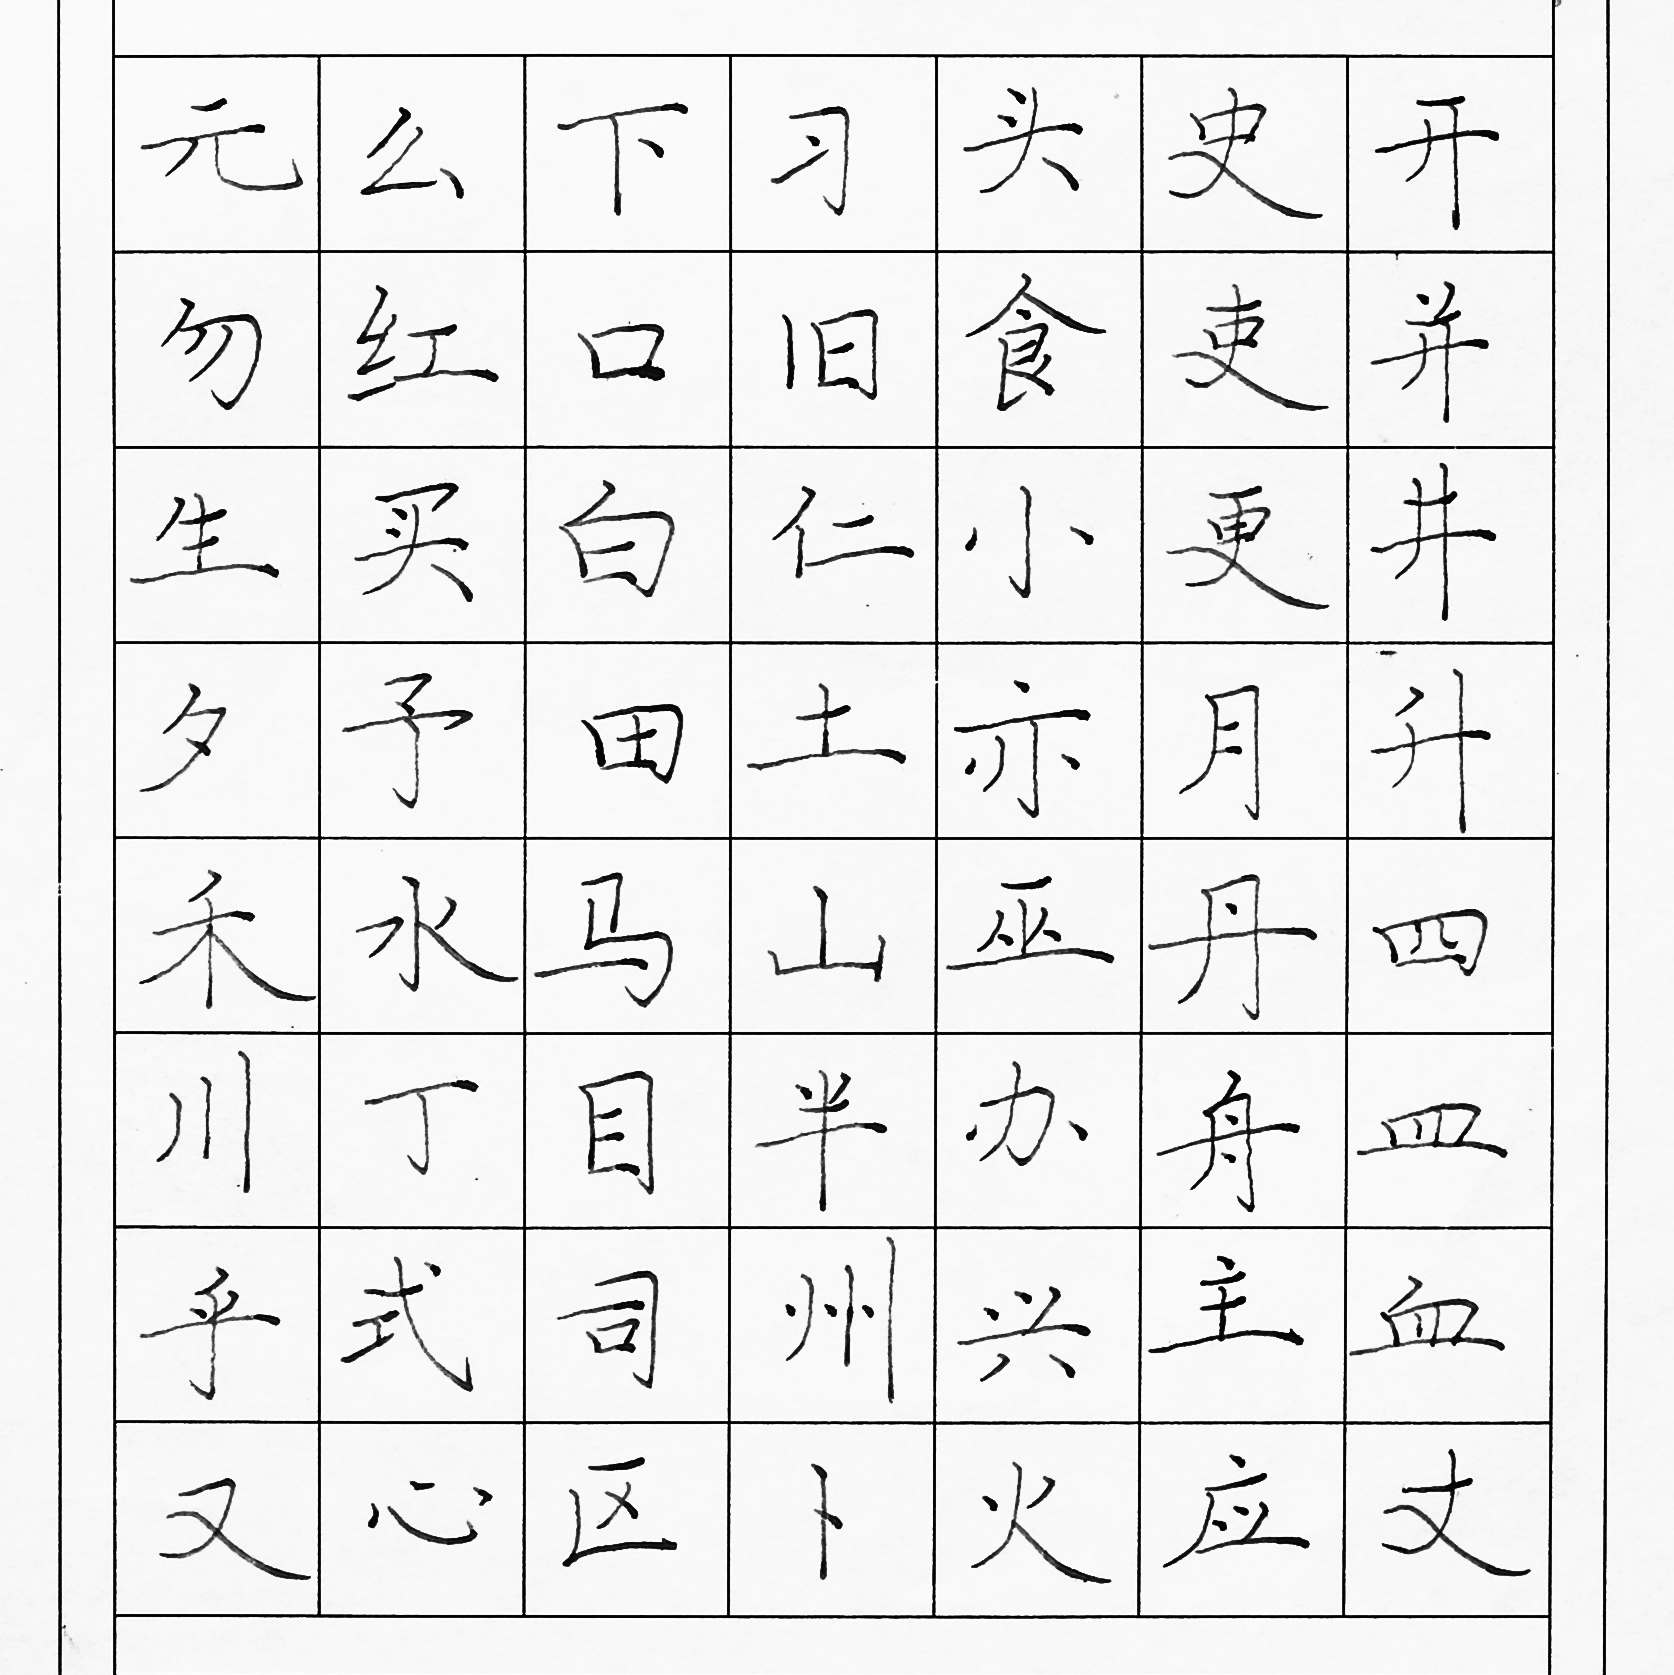 开并井升四皿血丈
史吏更月丹舟主应
头食小亦巫办兴火
习旧仁土山半州卜
下口白田马目司区
么红买予水丁式心
元勿生夕禾川乎又